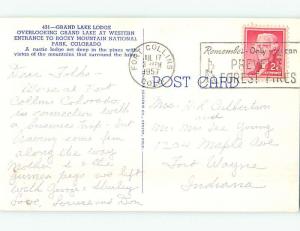 431—GRAND LAKE LODGE
OVERLOOKING GRAND LAKE AT WESTERN
ENTRANCE TO ROCKY MOUNTAIN NATIONAL
PARK, COLORADO
A rustic lodge set deep in the pines with a
vista of the mountains that surround the
FORT COLLINS
JUL 17
PM
1957
COLO
Remember-Only you can
PREVENT
FOREST FIRES
2¢
POST CARD
Dear Folks—
We're at Fort
Collins Colorado
in connection with
a business trip.
came along
the way
Mother & the
guinea pigs we left
with & Shirley
Love, & Don
Mrs. Culbertson
and
Mr. Mrs. Young
1234 Maple Ave
Fort Wayne
Indiana